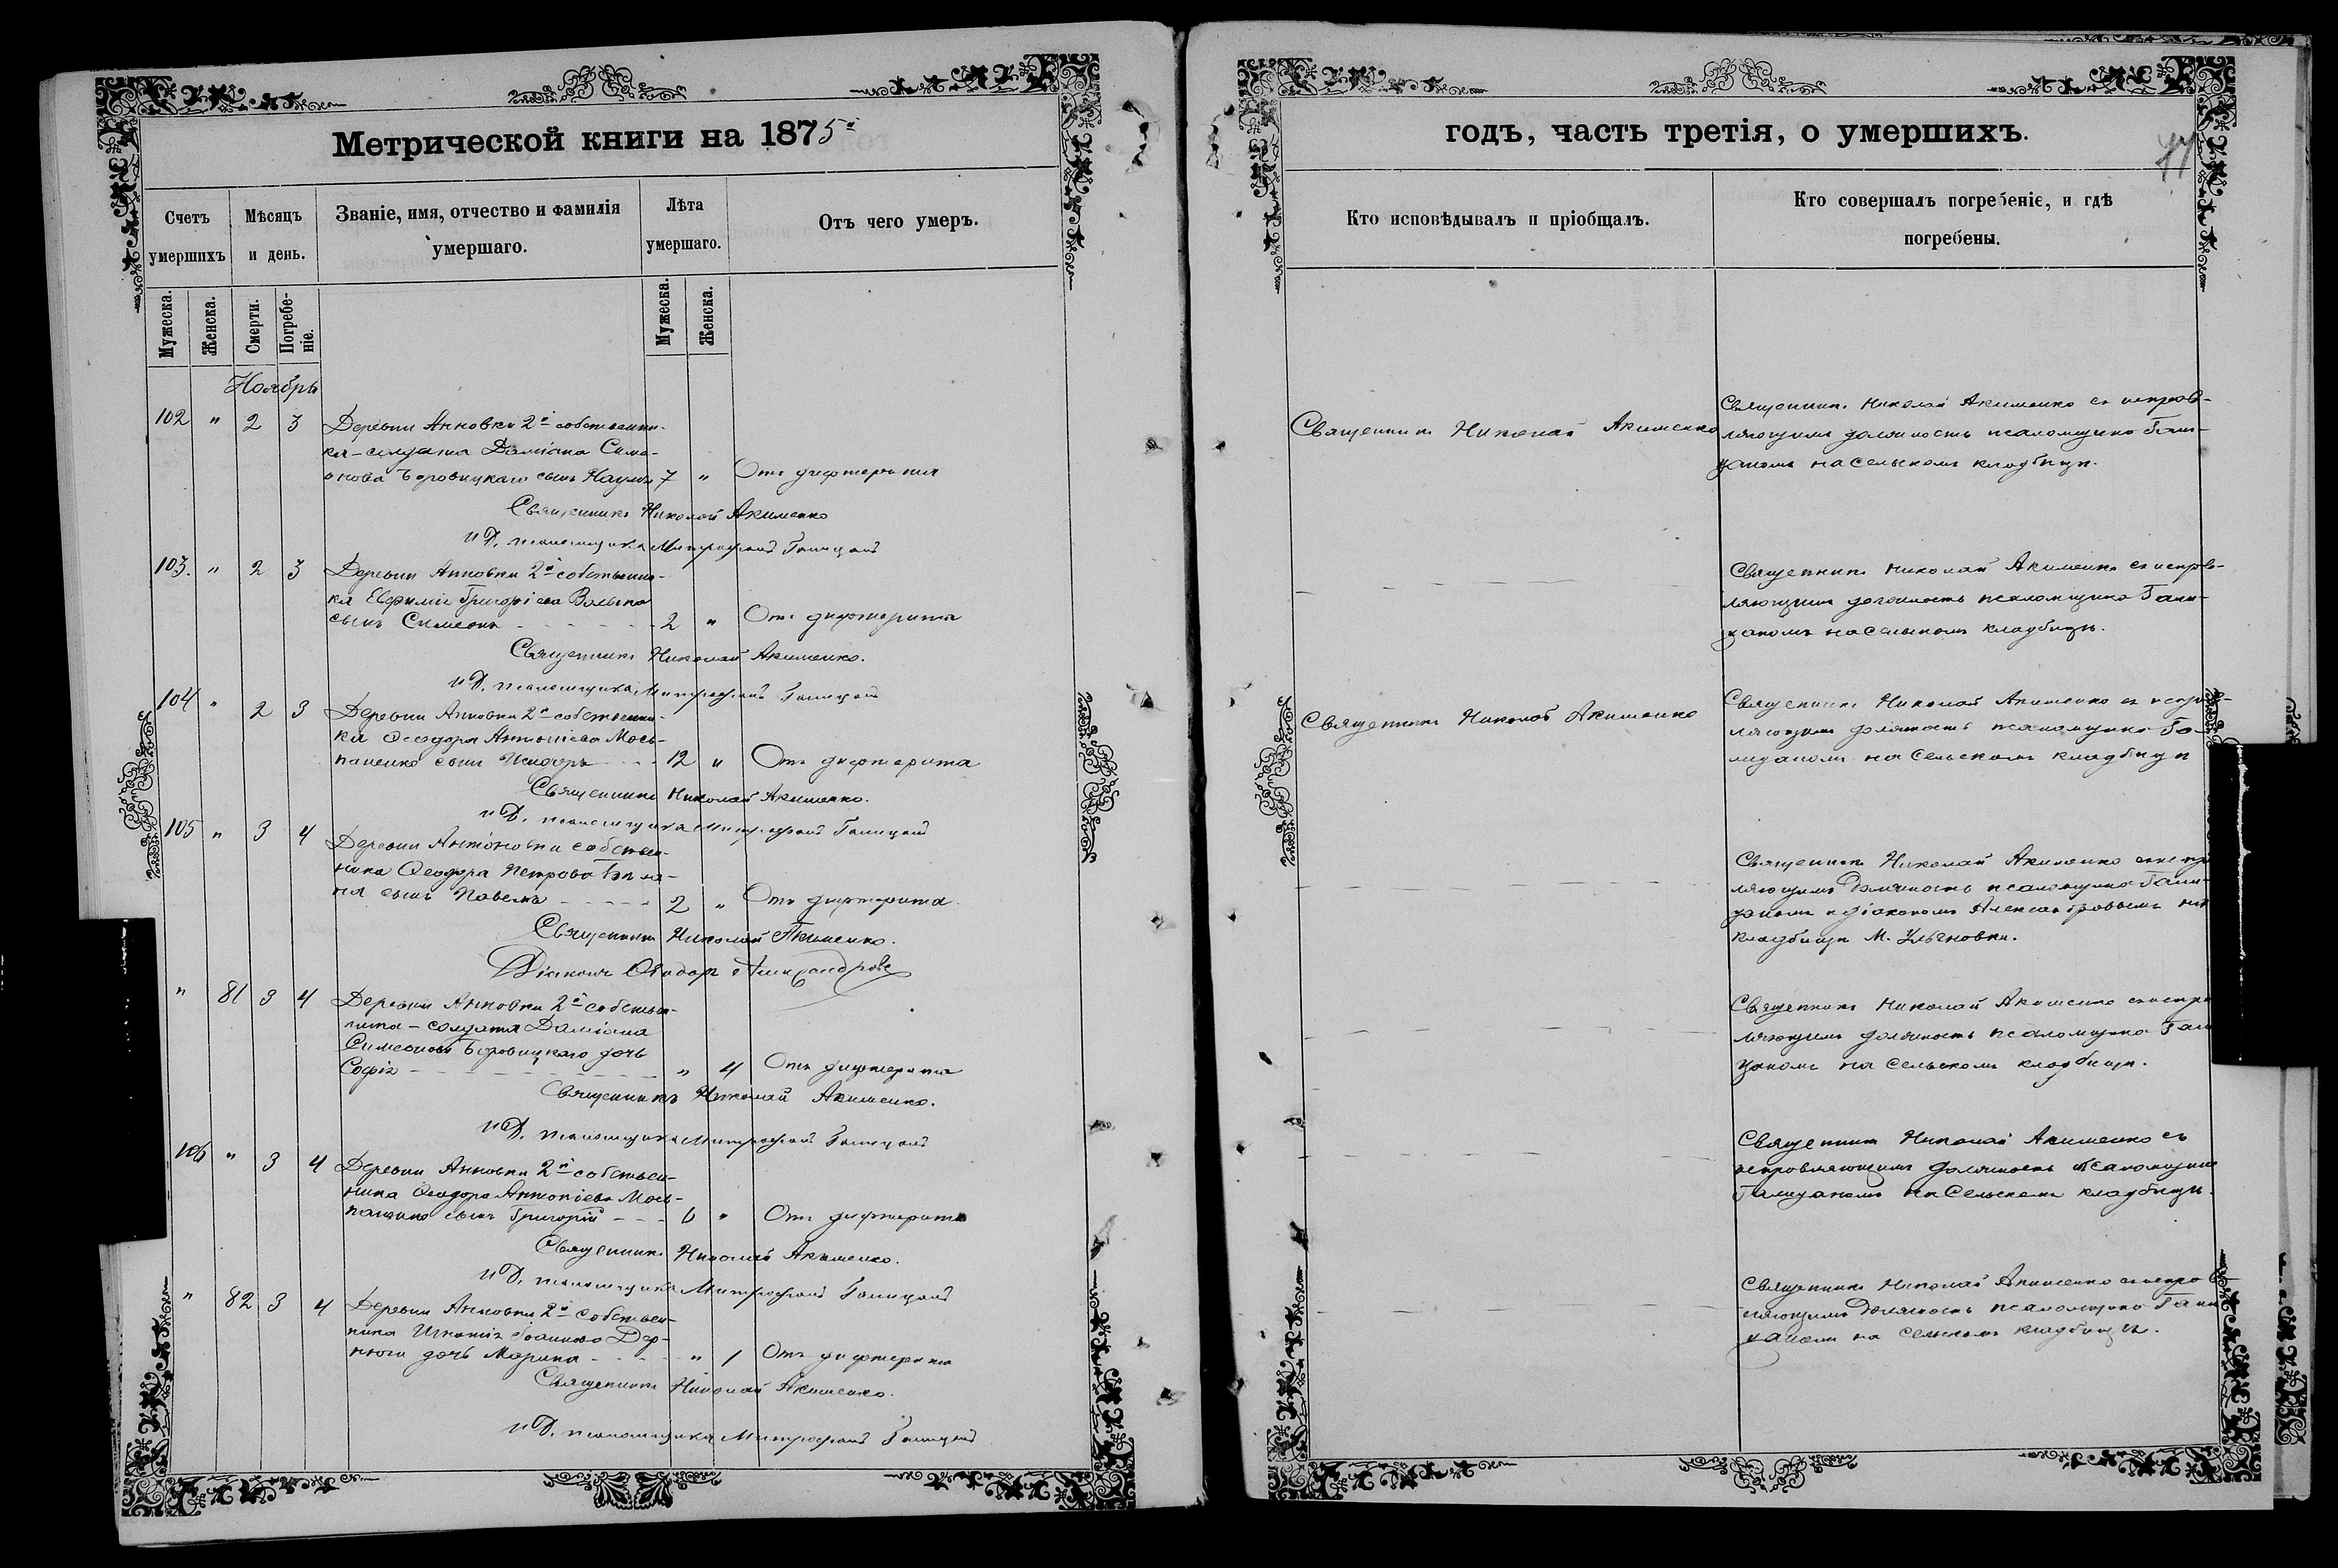 Метрической книги на 1875й
Счетъ умершихъ
Мѣсяцъ и день.
Званіе, имя, отчество и фамилія умершаго.
Лѣта умершаго.
Отъ чего умеръ.
Мужеска.
Женска.
Смерти.
Погребе-
ніе.
Мужеска.
Женска.
Ноябрь
102 " 2 3 Деревни Анновки 2й собственни-
ка-солдата Даміана Симе-
онова Боровицкаго сынъ Наумъ 7 " Отъ дифтерита
Священникъ Николай Акименко
И Д. псаломщика Митрофанъ Галицанъ
103. " 2 3 Деревни Анновки 2й собственни-
ка Евфимія Григоріева
сынъ Симеонъ 2 " Отъ дифтерита
Священникъ Николай Акименко.
И Д. псаломщика Митрофанъ Галицанъ
104 " 2 3 Деревни Анновки 2й собственни-
ка Ѳеодора Антоніева Мось-
паненко сынъ Исидоръ 12 " Отъ дифтерита
Священникъ Николай Акименко.
И Д. псаломщика Митрофанъ Галицанъ
105 " 3 4 Деревни Антоновки собствен-
ника Ѳеодора Петрова
сынъ Павелъ 2 " Отъ дифтерита.
Священникъ Николай Акименко.
Діаконъ Ѳеодоръ Александровъ
" 81 3 4 Деревни Анновки 2й собствен-
ника-солдата Даміана
Симеонова Боровицкаго дочь
Софія " 4 Отъ дифтерита
Священникъ Николай Акименко.
И Д. псаломщика Митрофанъ Галицанъ
106 " 3 4 Деревни Анновки 2й собствен-
ника Ѳеодора Антоніева Мось-
паненко сынъ Григорій 6 " Отъ дифтерита
Священникъ Николай Акименко.
И Д. псаломщика Митрофанъ Галицанъ
" 82 3 4 Деревни Анновки 2й собствен-
ника Игнатія Іоаннова Дер-
нюги дочь Марина " 1 Отъ дифтерита
Священникъ Николай Акименко.
И Д. псаломщика Митрофанъ Галицанъ
годъ, часть третія, о умершихъ.
77
Кто исповѣдывалъ и пріобщалъ.
Кто совершалъ погребеніе, и гдѣ
погребены.
Священникъ Николай Акименко
Священникъ Николай Акименко съ исправ-
ляющимъ должность псаломщика Гали-
цаномъ на сельскомъ кладбищѣ.
Священникъ Николай Акименко съ исправ-
ляющимъ должность псаломщика Гали-
цаномъ на сельскомъ кладбищѣ.
Священникъ Николай Акименко
Священникъ Николай Акименко съ исправ-
ляющимъ должность псаломщика Га-
лицаномъ на сельскомъ кладбищѣ
Священникъ Николай Акименко съ испра
ляющимъ должность псаломщика Гали-
цаномъ и діакономъ Александровымъ на
кладбищѣ М. Ульяновки.
Священникъ Николай Акименко съ испра
ляющимъ должность псаломщика Гали
цаномъ на сельскомъ кладбищѣ.
Священникъ Николай Акименко съ
исправляющимъ должность псаломщика
Галицаномъ на сельскомъ кладбищѣ.
Священникъ Николай Акименко съ исправ-
ляющимъ должность псаломщика Гали
цаномъ на сельскомъ кладбищѣ.